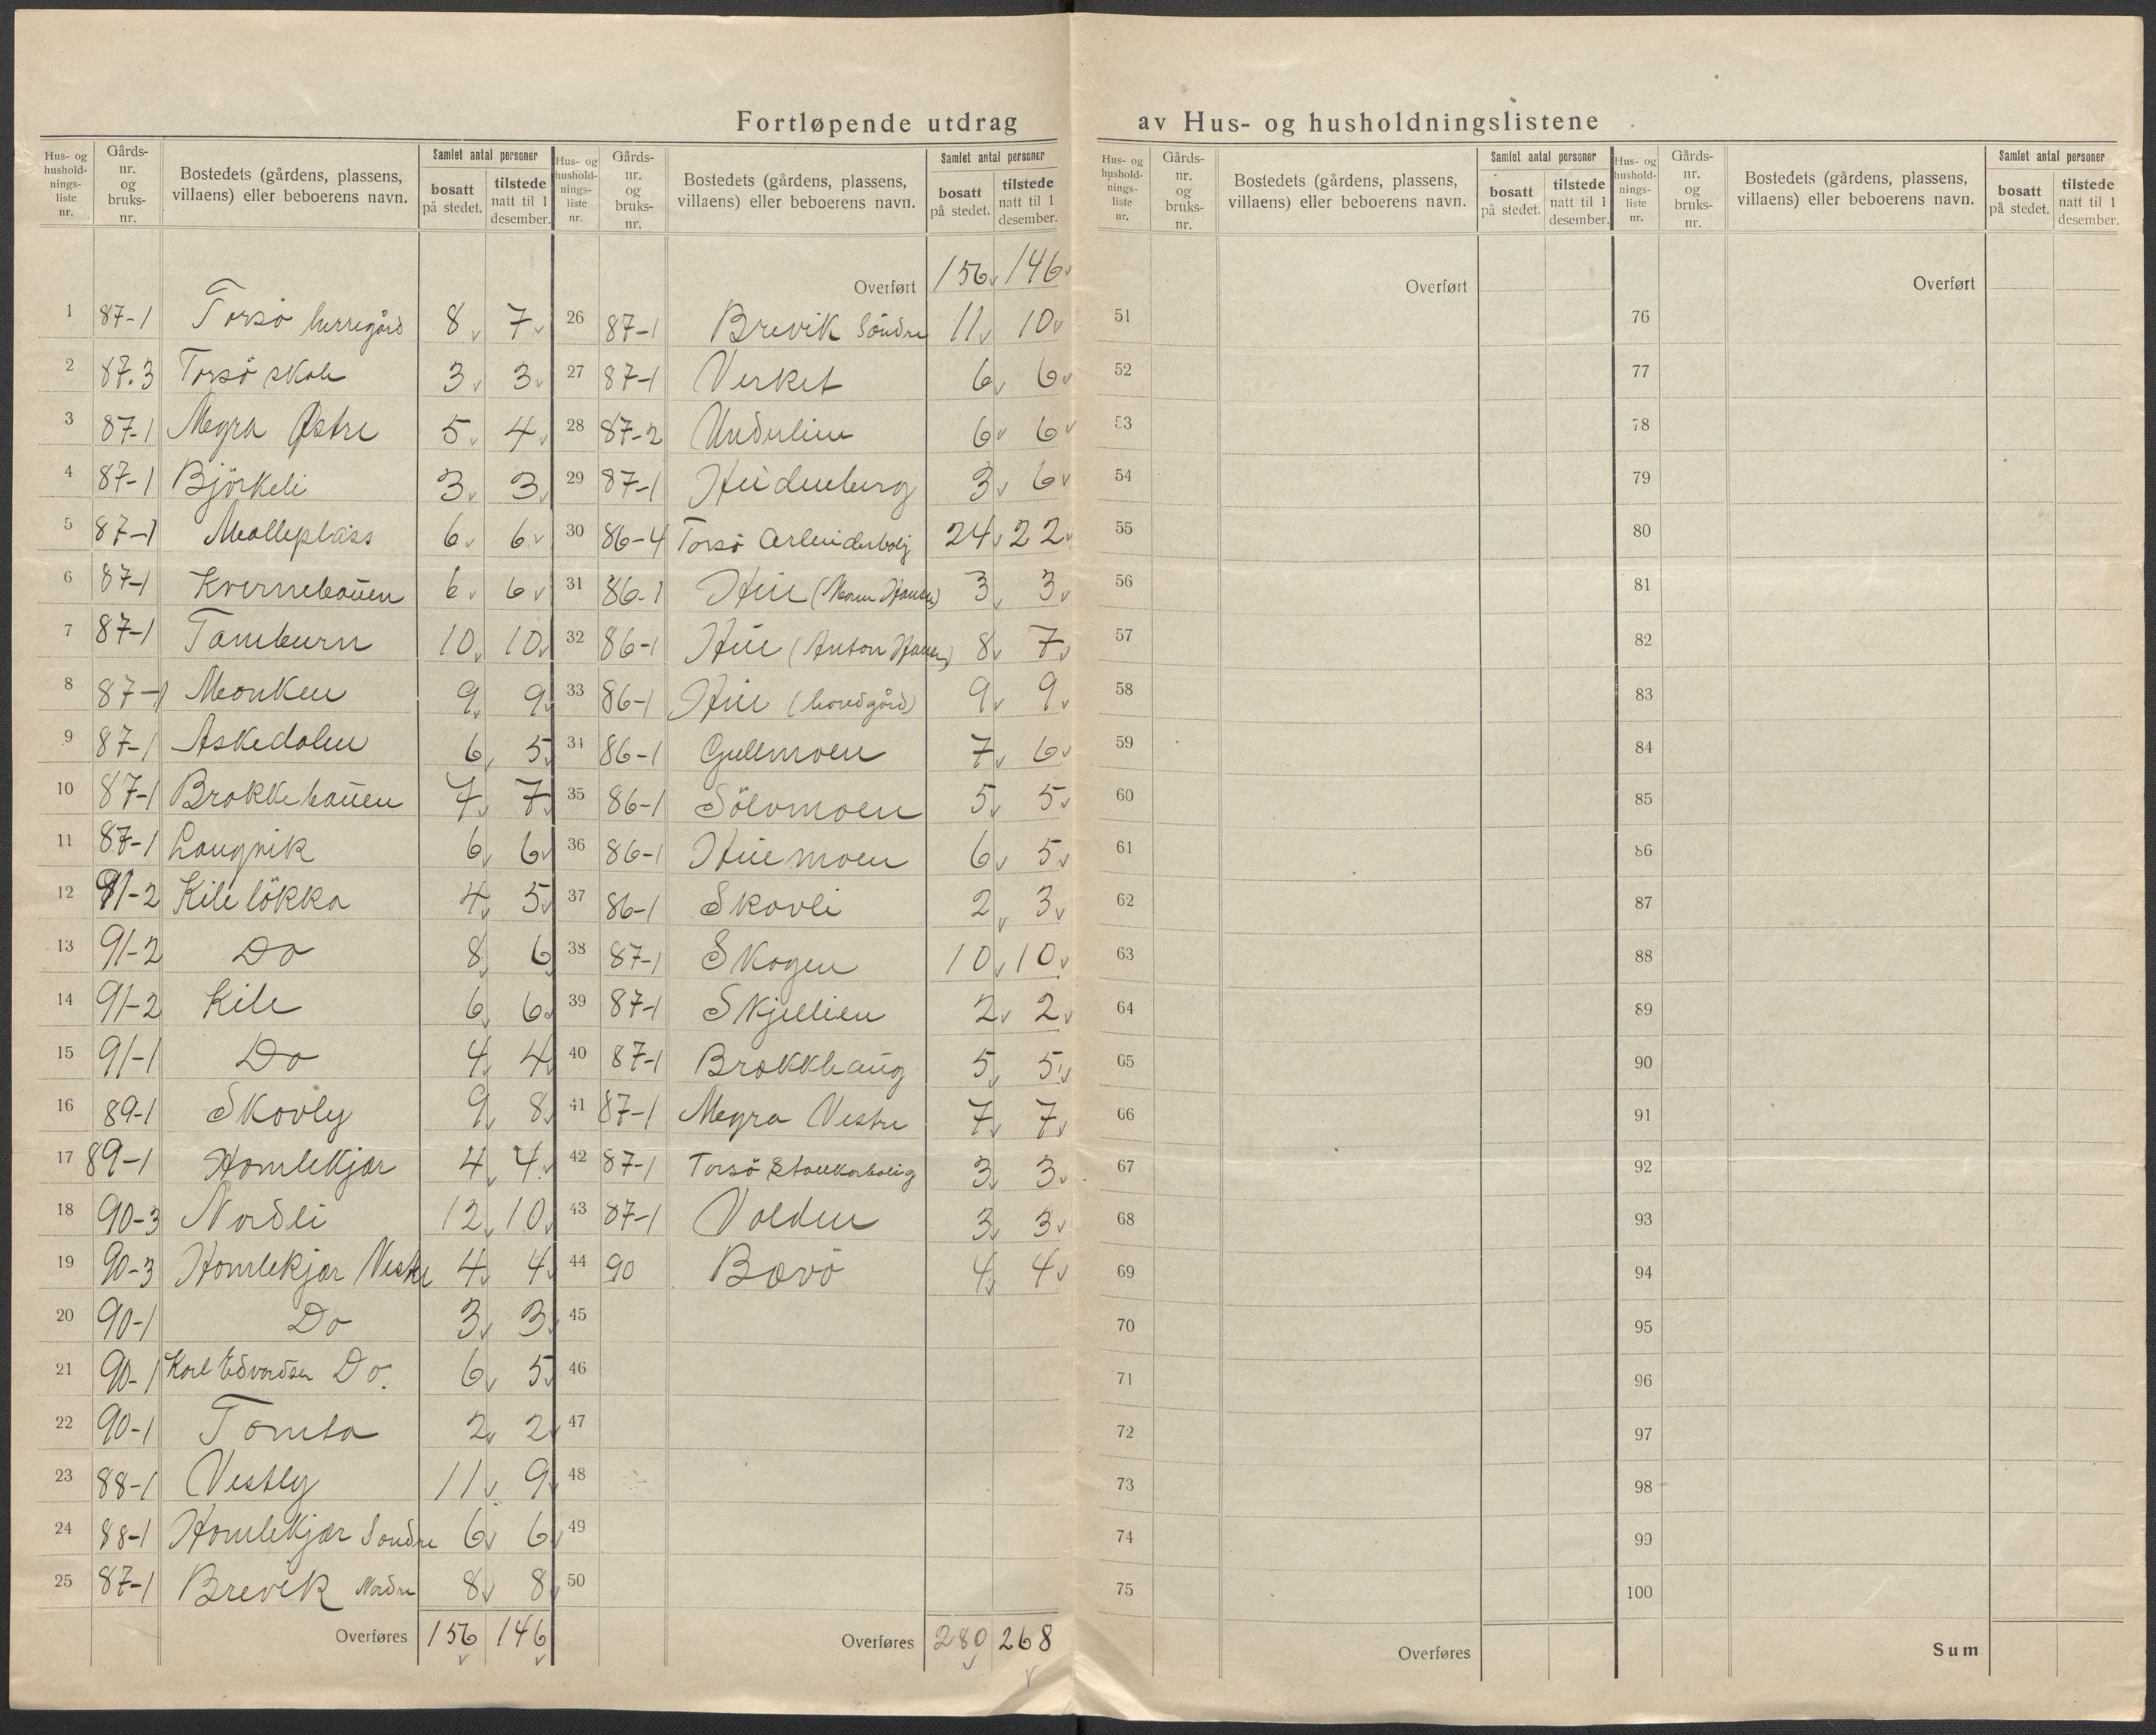 Fortløpende utdrag av Hus- og husholdningslistene
Hus- og hushold-nings-liste nr. Gårds-nr. og bruks-nr. Bostedets (gårdens, plassens, villaens) eller beboerens navn. Samlet antal personer bosatt på stedet. tilstede natt til 1 desember.
1 87-1 Torsö herregård 8 7
2 87.3 Torsö skole 3 3
3 87-1 Megra Østre 5 4
4 87-1 Björkeli 3 3
5 87-1 Molleplass 6 6
6 87-1 Kvernebauen 6 6
7 87-1 Tamburn 10 10
8 87-1 Monken 9 9
9 87-1 Askedalen 6 5
10 87-1 Brokkebauen 7 7
11 87-1 Langvik 6 6
12 91-2 Kile lökka 4 5
13 91-2 Do 8 6
14 91-2 Kile 6 6
15 91-1 Do 4 4
16 89-1 Skovly 9 8
17 89-1 Homlekjær 4 4
18 90-3 Nordli 12 10
19 90-3 Homlekjær Vestre 4 4
20 90-1 Do 3 3
21 90-1 Karl Edvardsen Do. 6 5
22 90-1 Tomta 2 2
23 88-1 Vestly 11 9
24 88-1 Homlekjær Söndre 6 6
25 87-1 Brevik Nordre 8 8
Overføres 156 146
Hus- og hushold-nings-liste nr. Gårds-nr. og bruks-nr. Bostedets (gårdens, plassens, villaens) eller beboerens navn. Samlet antal personer bosatt på stedet. tilstede natt til 1 desember.
Overført 156 146
26 87-1 Brevik Söndre 11 10
27 87-1 Verket 6 6
28 87-2 Underlien 6 6
29 87-1 Heidenberg 3 6
30 86-4 Torsö Arbeiderbolig 24 22
31 86-1 Huie (Maren Hansen) 3 3
32 86-1 Huie (Anton Hansen) 8 7
33 86-1 Huie (hovedgård) 9 9
34 86-1 Gullmoen 7 6
35 86-1 Sölvmoen 5 5
36 86-1 Huiemoen 6 5
37 86-1 Skovli 2 3
38 87-1 Skogen 10 10
39 87-1 Skjellien 2 2
40 87-1 Brokkhaug 5 5
41 87-1 Megra Vestre 7 7
42 87-1 Torsö 3 3
43 87-1 Volden 3 3
44 90 Bævö 4 4
45
46
47
48
49
50
Overføres 280 268
Hus- og hushold-nings-liste nr. Gårds-nr. og bruks-nr. Bostedets (gårdens, plassens, villaens) eller beboerens navn. Samlet antal personer bosatt på stedet. tilstede natt til 1 desember.
Overført
51
52
53
54
55
56
57
58
59
60
61
62
63
64
65
66
67
68
69
70
71
72
73
74
75
Overføres
Hus- og hushold-nings-liste nr. Gårds-nr. og bruks-nr. Bostedets (gårdens, plassens, villaens) eller beboerens navn. Samlet antal personer bosatt på stedet. tilstede natt til 1 desember.
Overført
76
77
78
79
80
81
82
83
84
85
86
87
88
89
90
91
92
93
94
95
96
97
98
99
100
Sum